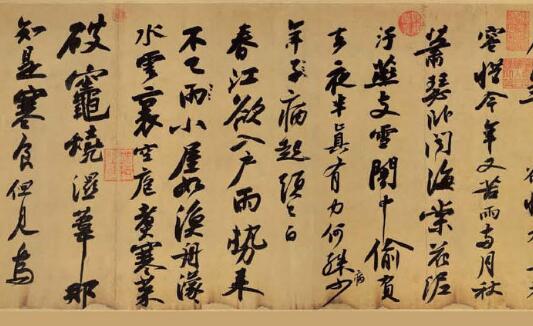 容惜今年又苦雨兩月秋
蕭瑟卧聞海棠花泥
汙燕支雪闇中偷負
去夜半真有力何殊病少
年子病起頭已白
春江欲入户雨勢来
不已雨小屋如漁舟濛
水雲裏空庖煮寒菜
破竈燒濕葦那
知是寒食但見烏